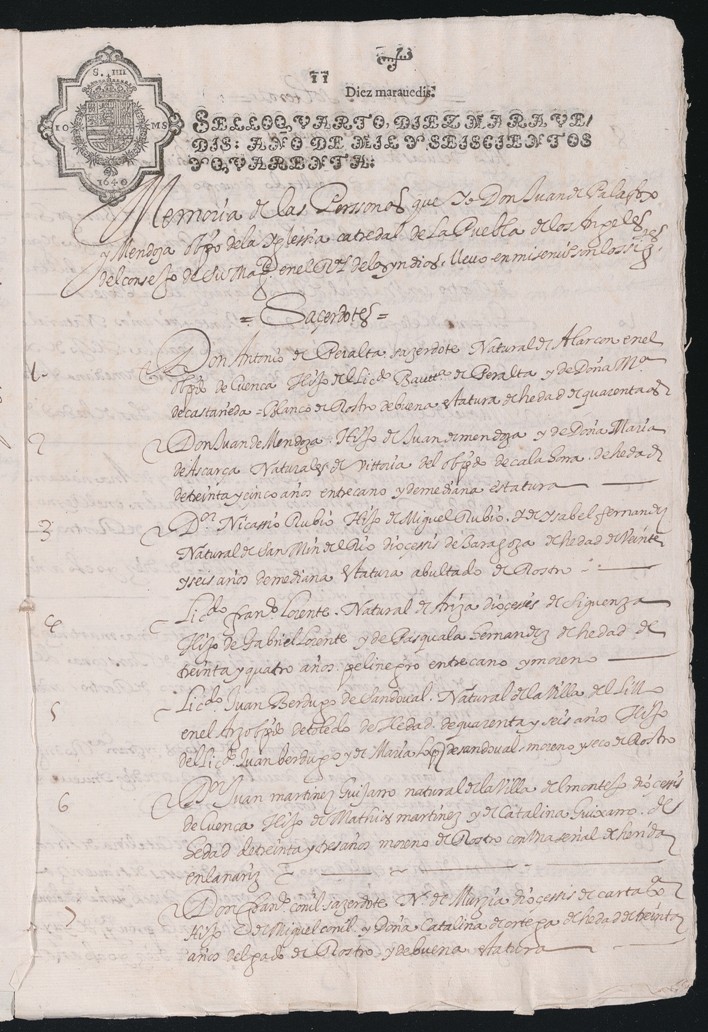 S. IIII
IO MS
1640
TT
Diez maravedis.
SELLO QVARTO, DIEZ MARAVE/
DIS: AÑO DE MIL Y SEISCIENTOS
Y QVARENTA:
Memoria de las Personas que yo Don Juan de Palafox
y Mendoza obpo de la Yglessia catredal de La Puebla de los Angeles
del consejo de su Magd en el Rl de las yndias. llevo en mi servicio son los sigtes
= Saçerdotes =
1. Don Antonio de Peralta sazerdote Natural de Alarcon en el
obpdo de Cuenca Hijo del Licdo Bautta de Peralta y de Doña Ma
de castañeda = blanco de Rostro de buena estatura de hedad de quarenta as
2 Don Juan de Mendoza. Hijo de Juan de mendoza y de Doña Maria
de Ascarca Naturales de Vittoria del obpdo de calaorra. de hedad
de treinta y cinco años entrecano y de mediana estatura
3 Dor Nicassio Rubio Hijo de Miguel Rubio, y de Ysabel fernandez
Natural de San Min del Rio diocessis de Zaragoza de hedad de Veinte
y seis años de mediana estatura abultado de Rostro
4 Licdo franco Lorente. Natural de Ariza diocessis de Siguenza
Hijo de Gabriel Lorente y de Pasquala Hernandez de hedad de
treinta y quatro años pelinegro entrecano y moreno
5 Licdo Juan Berdugo de Sandoval. Natural de la Villa del Lillo
en el Arzobpdo de toledo de Hedad de quarenta y seis año Hijo
del Licdo Juan berdugo y de Maria Lopez de sandoval moreno y seco de Rostro
6 Dor Juan martinez Guijarro natural de la Villa de el montejo diocessis
de Cuenca Hijo de Mathias martinez y de Catalina Guixarro. de
hedad de treinta y tres años moreno de Rostro con Una señal de herida
en la nariz
7 Don franco conil sazerdote Nl de Murzia diocessis de cartaxa
Hijo de Miguel conil y Doña Catalina de ortega de hedad de treinta
años delgado de Rostro y de buena estatura